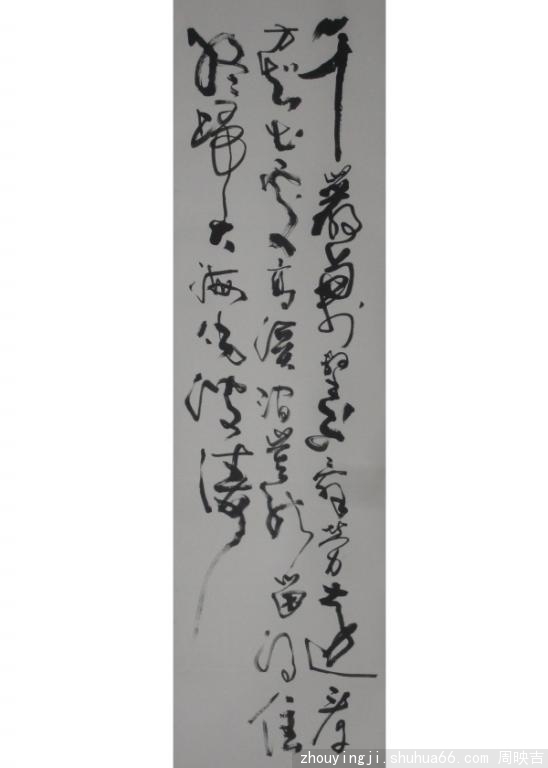 千巖萬壑不辞劳遠看
方知出處高溪澗豈能留得住
終歸大海作波濤
zhouyingji.shuhua66.com 周映吉